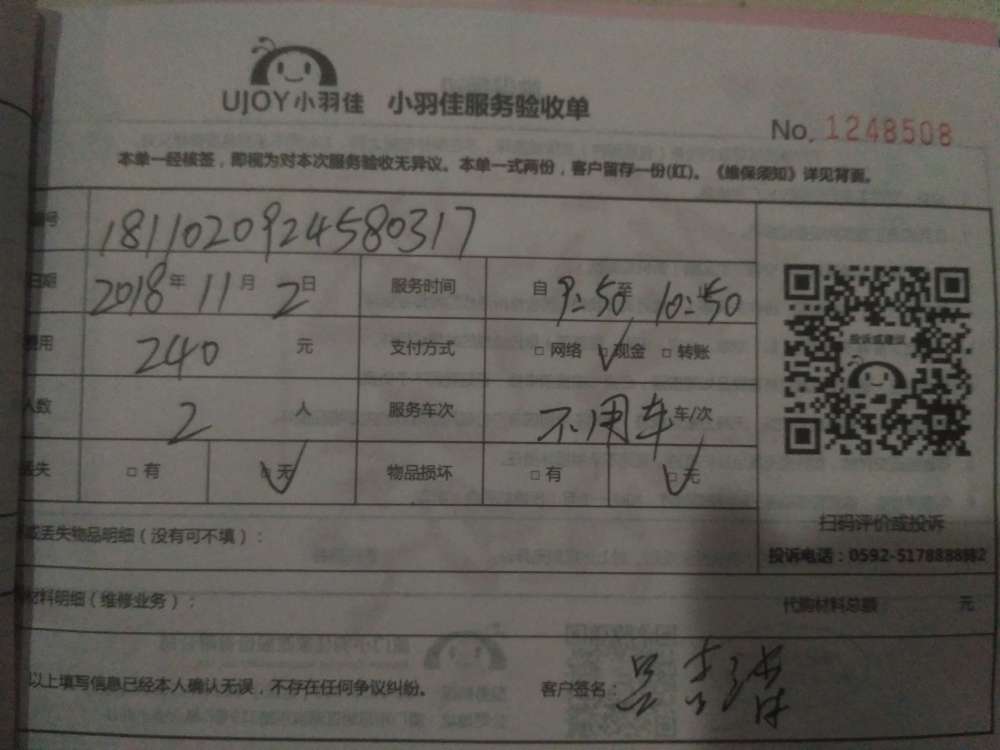 UJOY小羽佳 小羽佳服务验收单
No. 1248508
本单一经核签，即视为对本次服务验收无异议。本单一式两份，客户留存一份(红)。《维保须知》详见背面。
号 1811020924580317
日期 2018年11月2日 服务时间 自9:50至10:50止
费用 240 元 支付方式 □网络 □现金 □转账
人数 2 人 服务车次 不用车 车/次
丢失 □有 □无 物品损坏 □有 □无
投诉或建议
扫码评价或投诉
投诉电话：0592-5178888
或丢失物品明细（没有可不填）：
材料明细（维修业务）： 代购材料总额 元
以上填写信息已经本人确认无误，不存在任何争议纠纷。 客户签名：